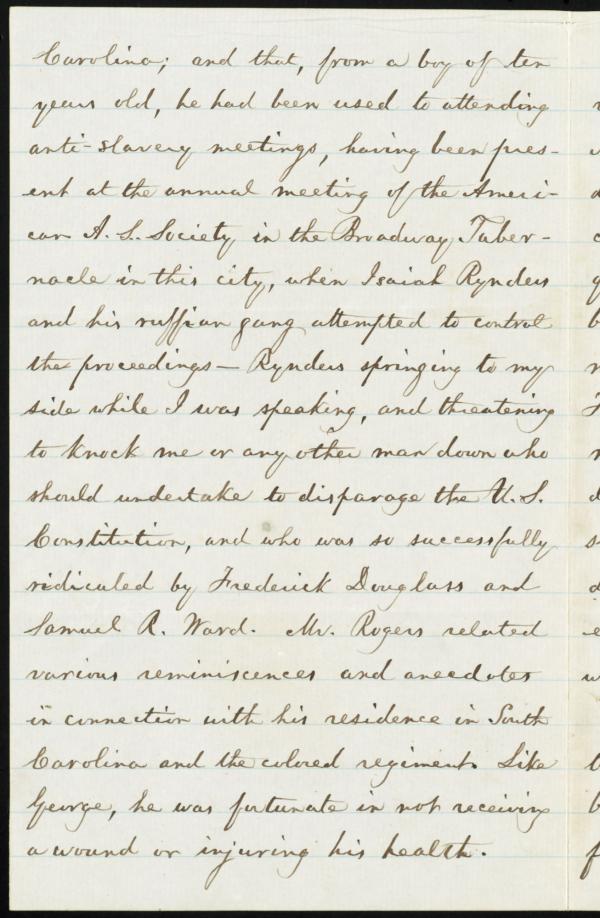 Carolina; and that, from a boy of ten
years old, he had been used to attending
anti-slavery meetings, having been pres-
ent at the annual meeting of the Ameri-
can A. S. Society in the Broadway Taber-
nacle in this city, when Isaiah Rynders
and his ruffian gang attempted to control
the proceedings — Rynders springing to my
side while I was speaking, and threatening
to knock me or any other man down who
should undertake to disparage the U. S.
Constitution, and who was so successfully
ridiculed by Frederick Douglass and
Samuel R. Ward. Mr. Rogers related
various reminiscences and anecdotes
in connection with his residence in South
Carolina and the colored regiment. Like
George, he was fortunate in not receiving
a wound or injuring his health.